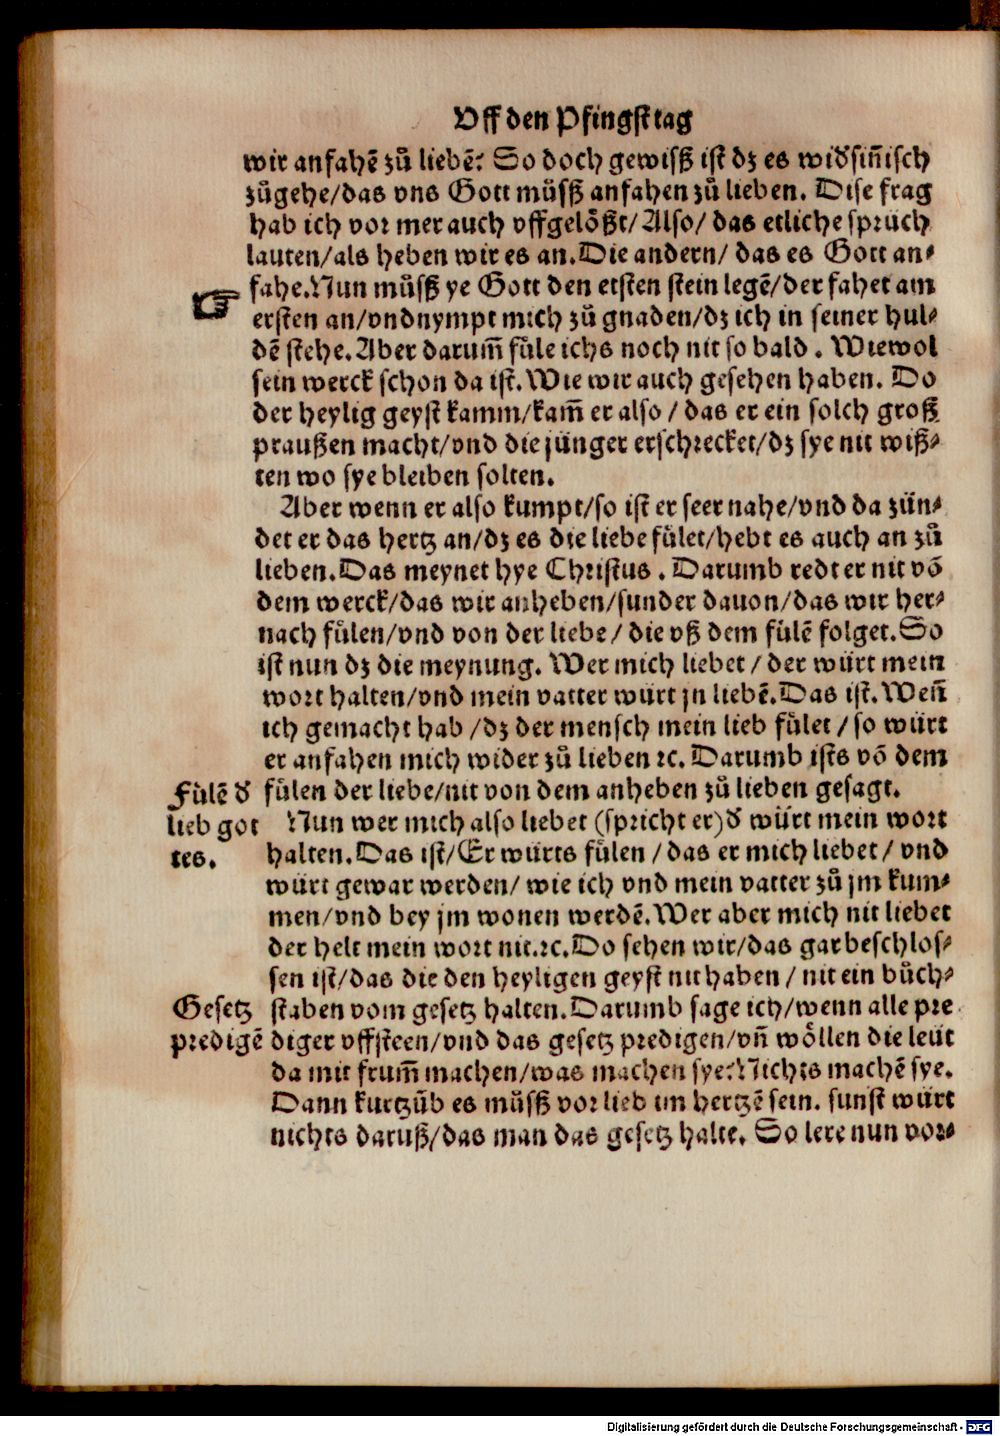 Vff den Pfingsttag
wir anfahē zů liebē? So doch gewißß ist dz es widsin̄isch
zůgehe/das vns Gott můßß anfahen zů lieben. Dise frag
hab ich vor mer auch vffgelößt/Also/ das etliche sprüch
lauten/als heben wir es an. Die andern/ das es Gott an-
☞ fahe. Nun můßß ye Gott den ersten stein legē/der fahet am
ersten an/vnd nympt mich zů gnaden/dz ich in seiner hul-
dē stehe. Aber darum̄ fůle ichs noch nit so bald. Wiewol
sein werck schon da ist. Wie wir auch gesehen haben. Do
der heylig geyst kamm/kam̄ er also / das er ein solch groß
praußen macht/vnd die jünger erschrecket/dz sye nit wiß-
ten wo sye bleiben solten.
Aber wenn er also kumpt/so ist er seer nahe/vnd da zün-
det er das hertz an/dz es die liebe fůlet/hebt es auch an zů
lieben. Das meynet hye Christus. Darumb redt er nit võ
dem werck/das wir anheben/sunder dauon/das wir her-
nach fůlen/vnd von der liebe/ die vß dem fůlē folget. So
ist nun dz die meynung. Wer mich liebet / der würt mein
wort halten/vnd mein vatter würt jn liebē. Das ist. Wen̄
ich gemacht hab /dz der mensch mein lieb fůlet / so würt
er anfahen mich wider zů lieben ⁊c. Darumb ists võ dem
Fůlē d̕ fůlen der liebe/nit von dem anheben zů lieben gesagt.
lieb got Nun wer mich also liebet (spricht er) d̕ würt mein wort
tes. halten. Das ist/Er würts fůlen / das er mich liebet/ vnd
würt gewar werden/ wie ich vnd mein vatter zů jm kum-
men/vnd bey jm wonen werdē. Wer aber mich nit liebet
der helt mein wort nit.⁊c. Do sehen wir/das gar beschlos-
sen ist/das die den heyligen geyst nit haben / nit ein bůch-
Gesetz staben vom gesetz halten. Darumb sage ich/wenn alle pre
predigē diger vffsteen/vnd das gesetz predigen/vn̄ wöllen die leüt
da mit frum̄ machen/was machen sye? Nichts machē sye.
Dann kurtzüb es můßß vor lieb im hertzē sein. sunst würt
nichts daruß/das man das gesetz halte. So lere nun vor-
Digitalisierung gefördert durch die Deutsche Forschungsgemeinschaft - DFG